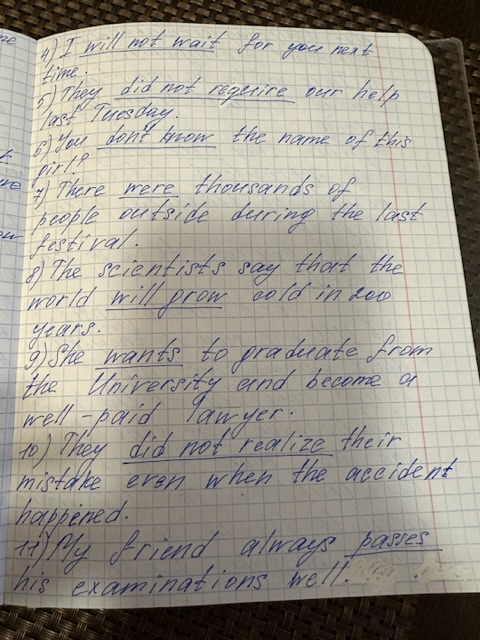 4) I will not wait for you next
time.
5) They did not require our help
last Tuesday.
6) You don't know the name of this
girl?
7) There were thousands of
people outside during the last
festival.
8) The scientists say that the
world will grow cold in 200
years.
9) She wants to graduate from
the University and become a
well-paid lawyer.
10) They did not realize their
mistake even when the accident
happened.
11) My friend always passes
his examinations well.